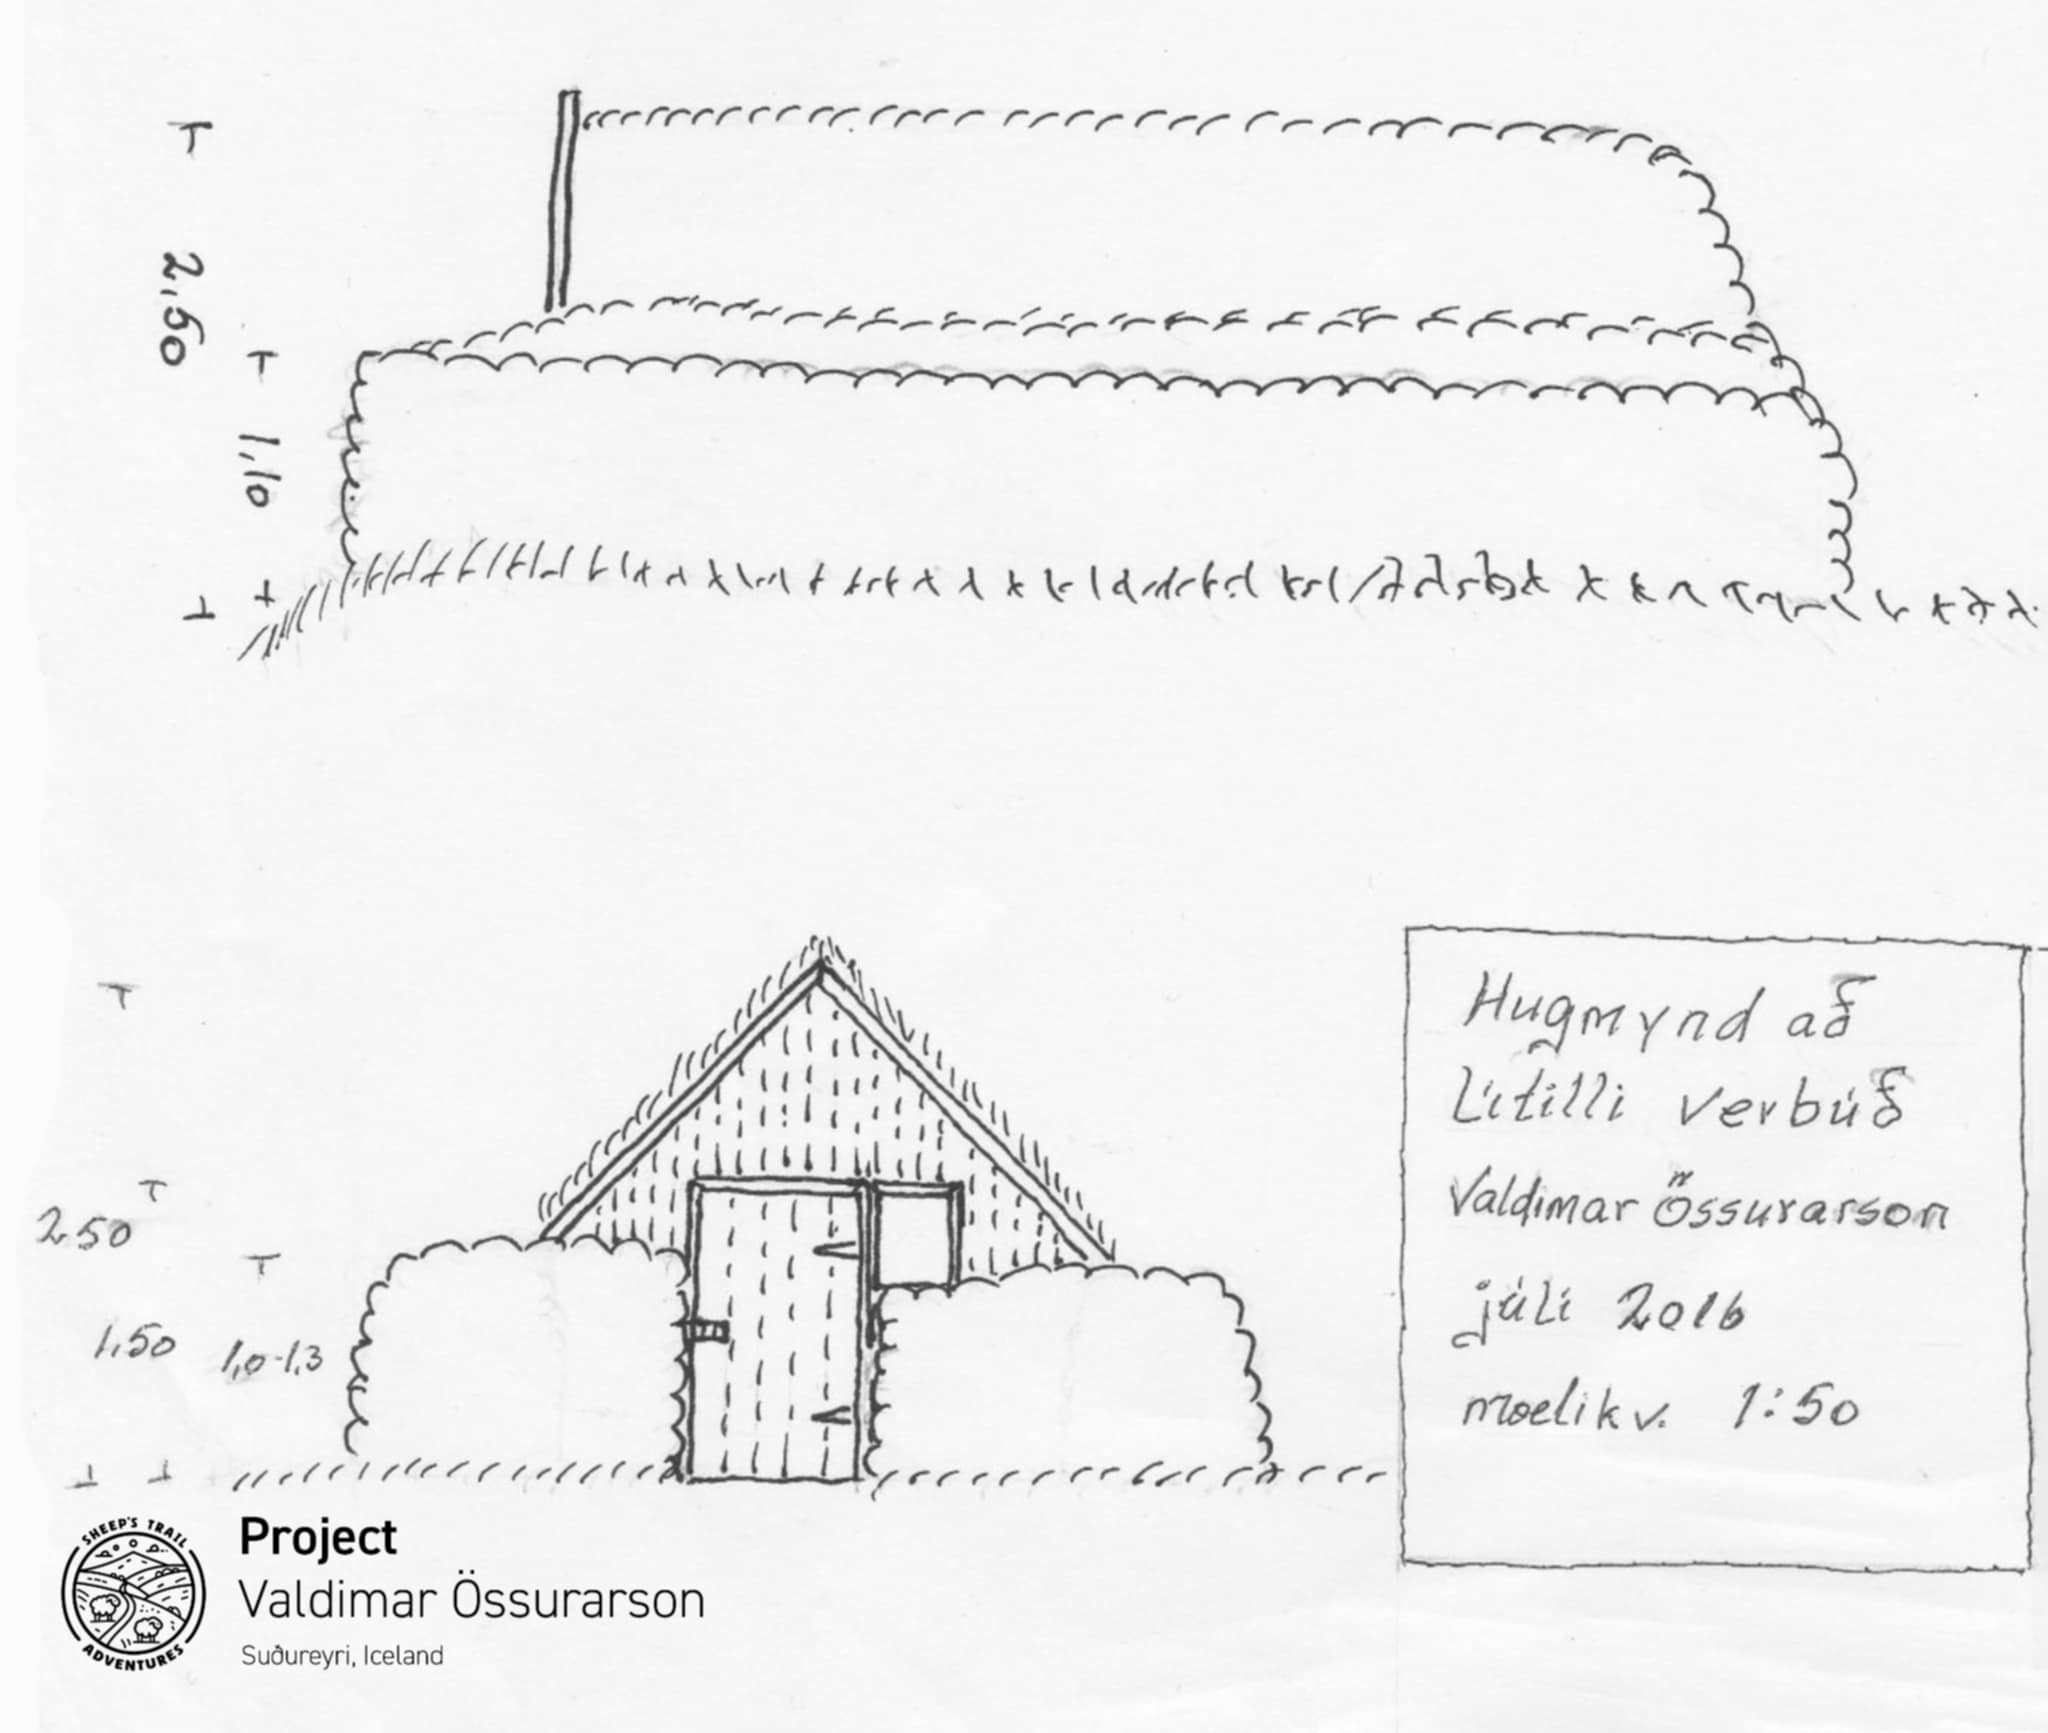 2,50
1,10
2.50
1,50
1,0-1,3
Hugmynd að
Lítilli verbúð
Valdimar Össurarson
júlí 2016
mælikv. 1:50
SHEEP'S TRAIL
ADVENTURES
Project
Valdimar Össurarson
Suðureyri, Iceland